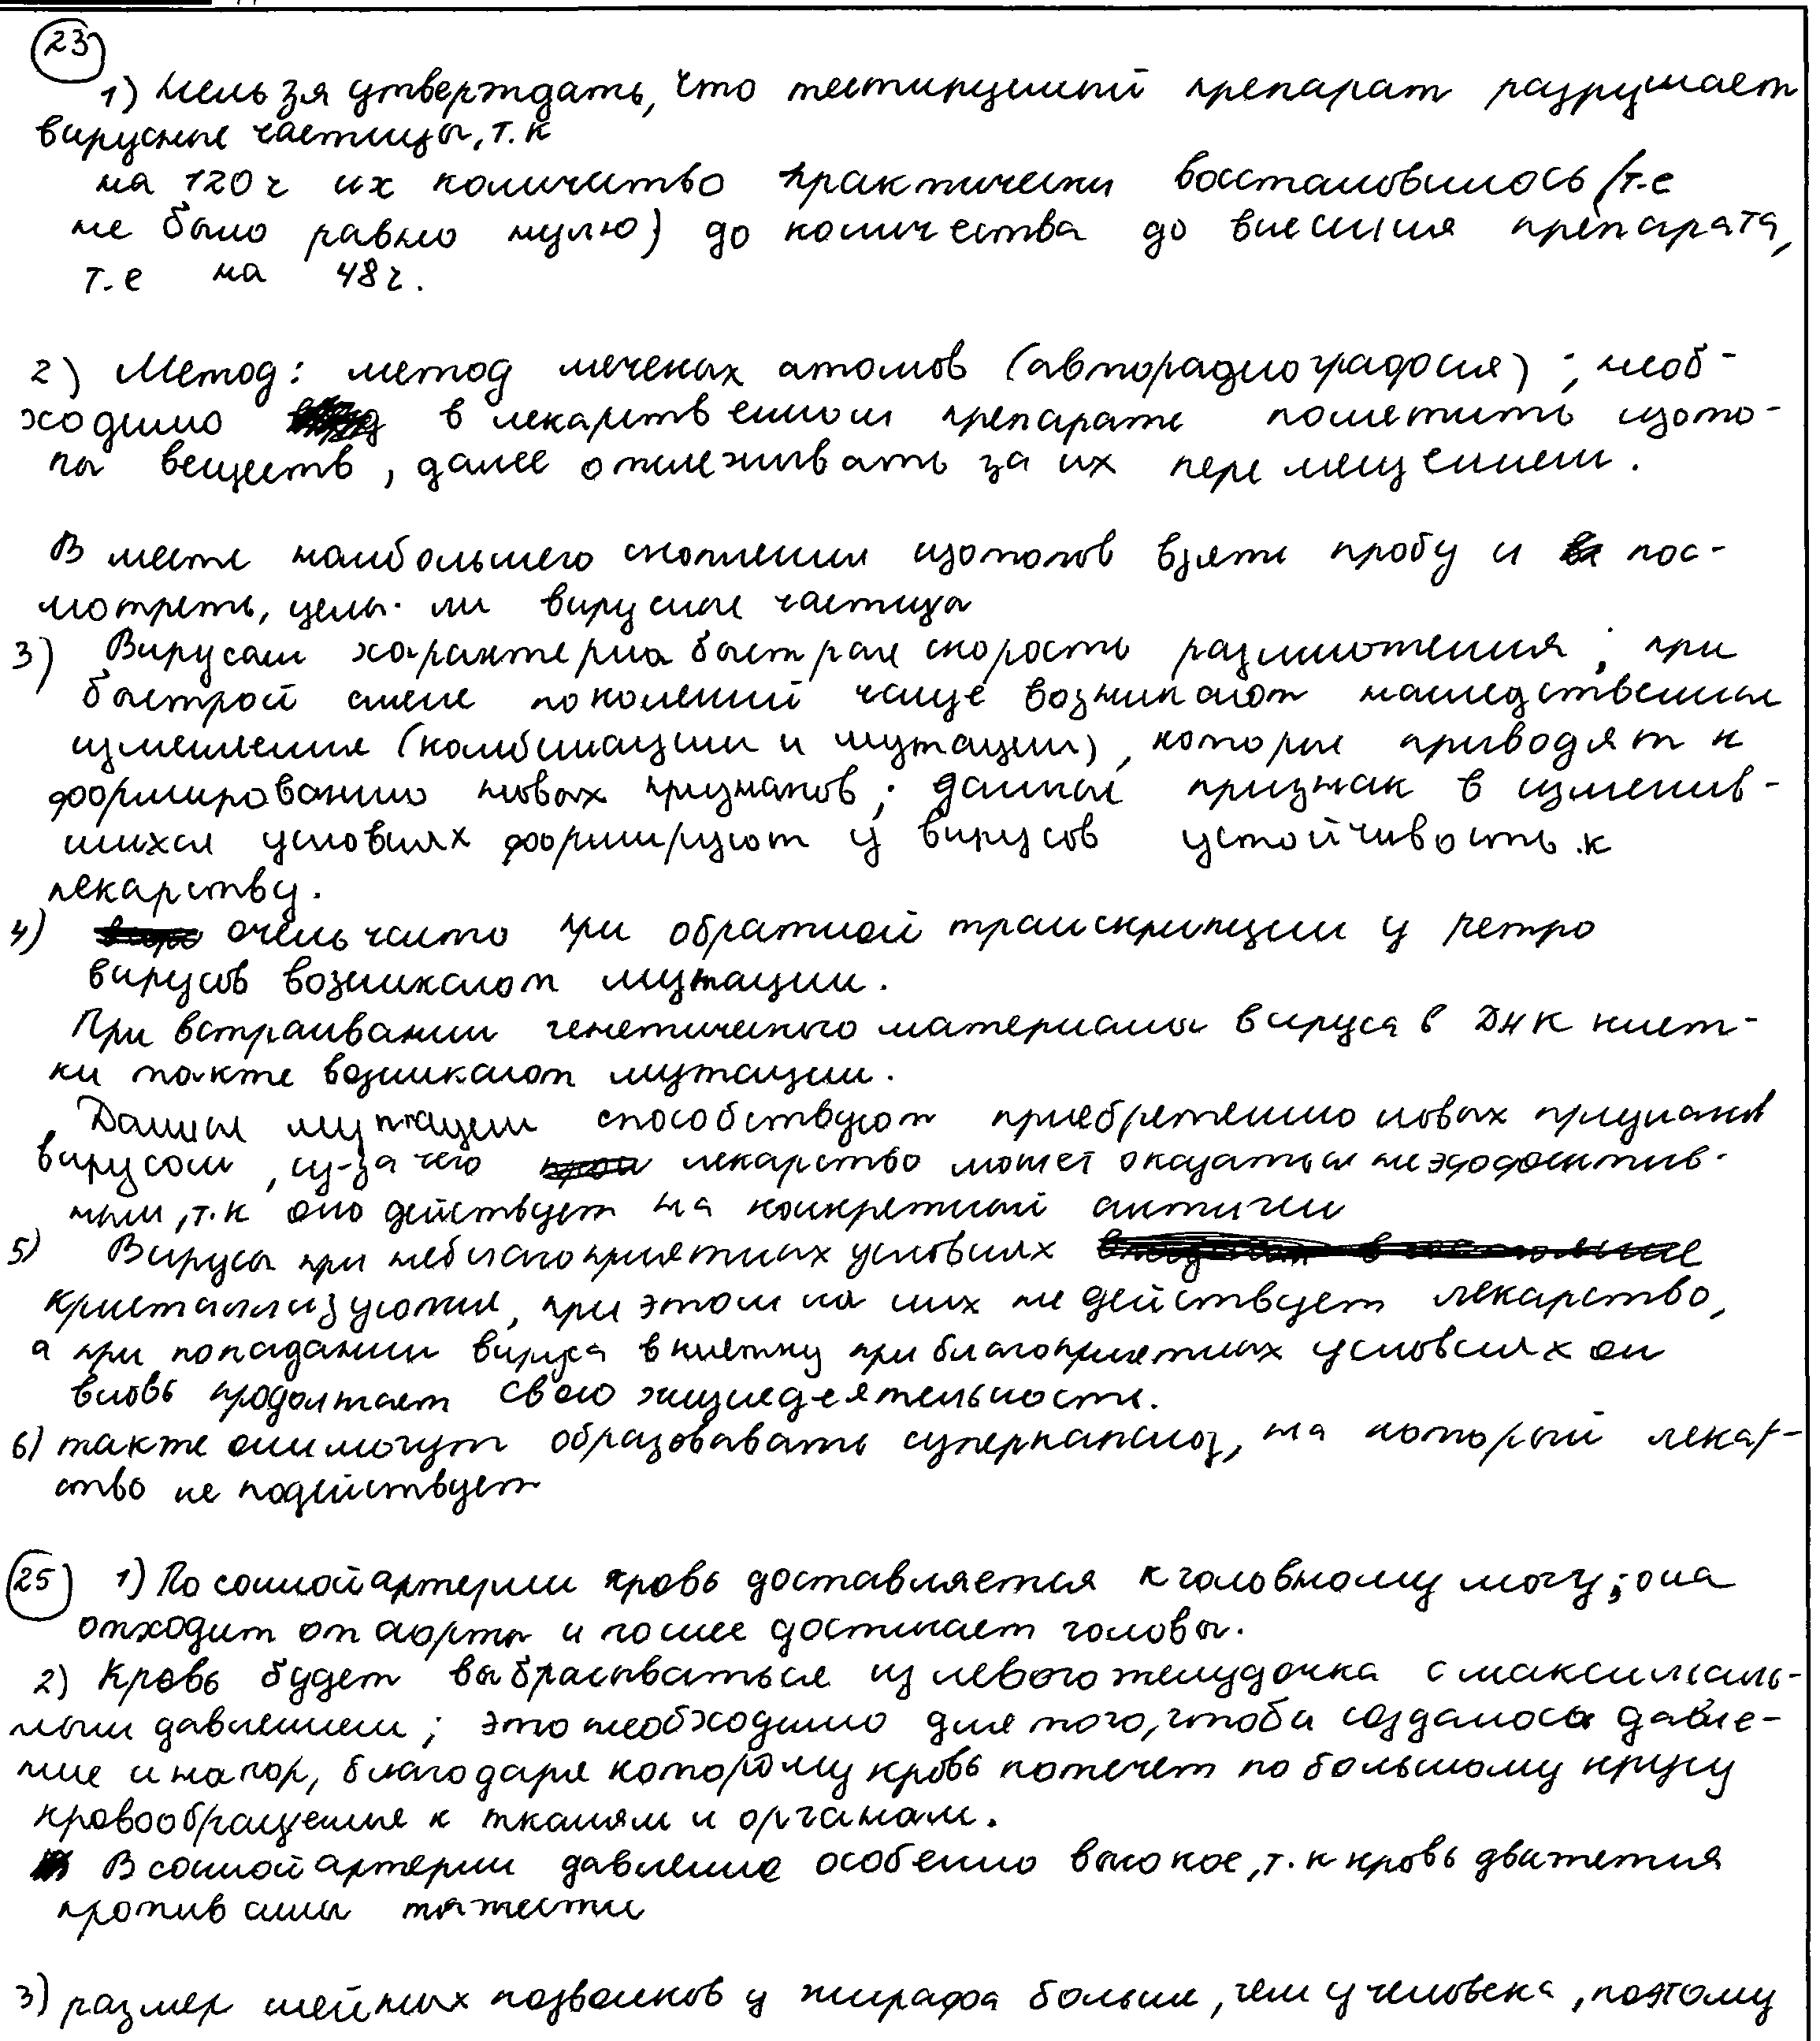 23
1) Нельзя утверждать, что тестируемый препарат разрушает
вирусные частицы, т.к
на 120ч их количество практически восстановилось (т.е
не было равно нулю) до количества до внесения препарата,
т.е на 48ч.
2) Метод: метод меченых атомов (авторадиография); необ-
ходимо в лекарственном препарате пометить изото-
пы веществ, далее отслеживать за их перемещением.
В месте наибольшего скопления изотопов взять пробу и пос-
мотреть, целы ли вирусные частицы
3) Вирусам характерна быстрая скорость размножения; при
быстрой смене поколений чаще возникают наследственные
изменения (комбинации и мутации), которые приводят к
формированию новых признаков; данные признак в изменив-
шихся условиях формируют у вирусов устойчивость к
лекарству.
4) очень часто при обратной транскрипции у ретро
вирусов возникают мутации.
При встраивании генетического материала вируса в ДНК клет-
ки также возникают мутации.
Данные мутации способствуют приобретению новых признаков
вирусом, из-за чего лекарство может оказаться неэффектив-
ным, т.к оно действует на конкретный антиген
5) Вирусы при неблагоприятных условиях
кристаллизуются, при этом на них не действует лекарство,
а при попадании вируса в клетку при благоприятных условиях он
вновь продолжает свою жизнедеятельность.
6) также они могут образовывать суперкапсид, на который лекар-
ство не подействует
25 1) По сонной артерии кровь доставляется к головному мозгу; она
отходит от аорты и позже достигает головы.
2) Кровь будет выбрасываться из левого желудочка с максималь-
ным давлением; это необходимо для того, чтобы создалось давле-
ние и напор, благодаря которому кровь потечет по большому кругу
кровообращения к тканям и органам.
В сонной артерии давление особенно высокое, т.к кровь движется
против силы тяжести
3) размер шейных позвонков у жирафа больше, чем у человека, поэтому